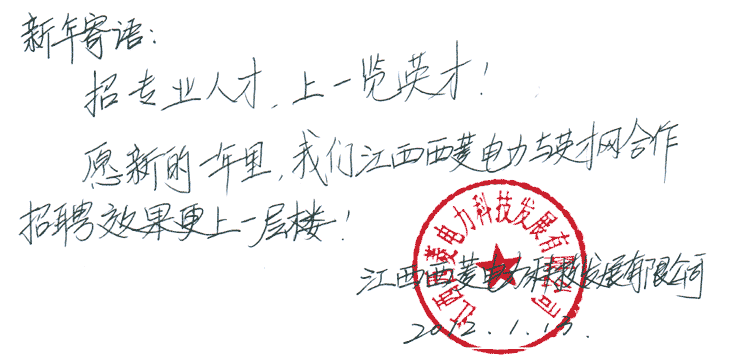 新年寄语:
招专业人才,上一览英才!
愿新的一年里,我们江西西菱电力与英才网合作
招聘效果更上一层楼!
江西西菱电力科技发展有限公司
江西西菱电力科技发展有限公司
2012.1.13.